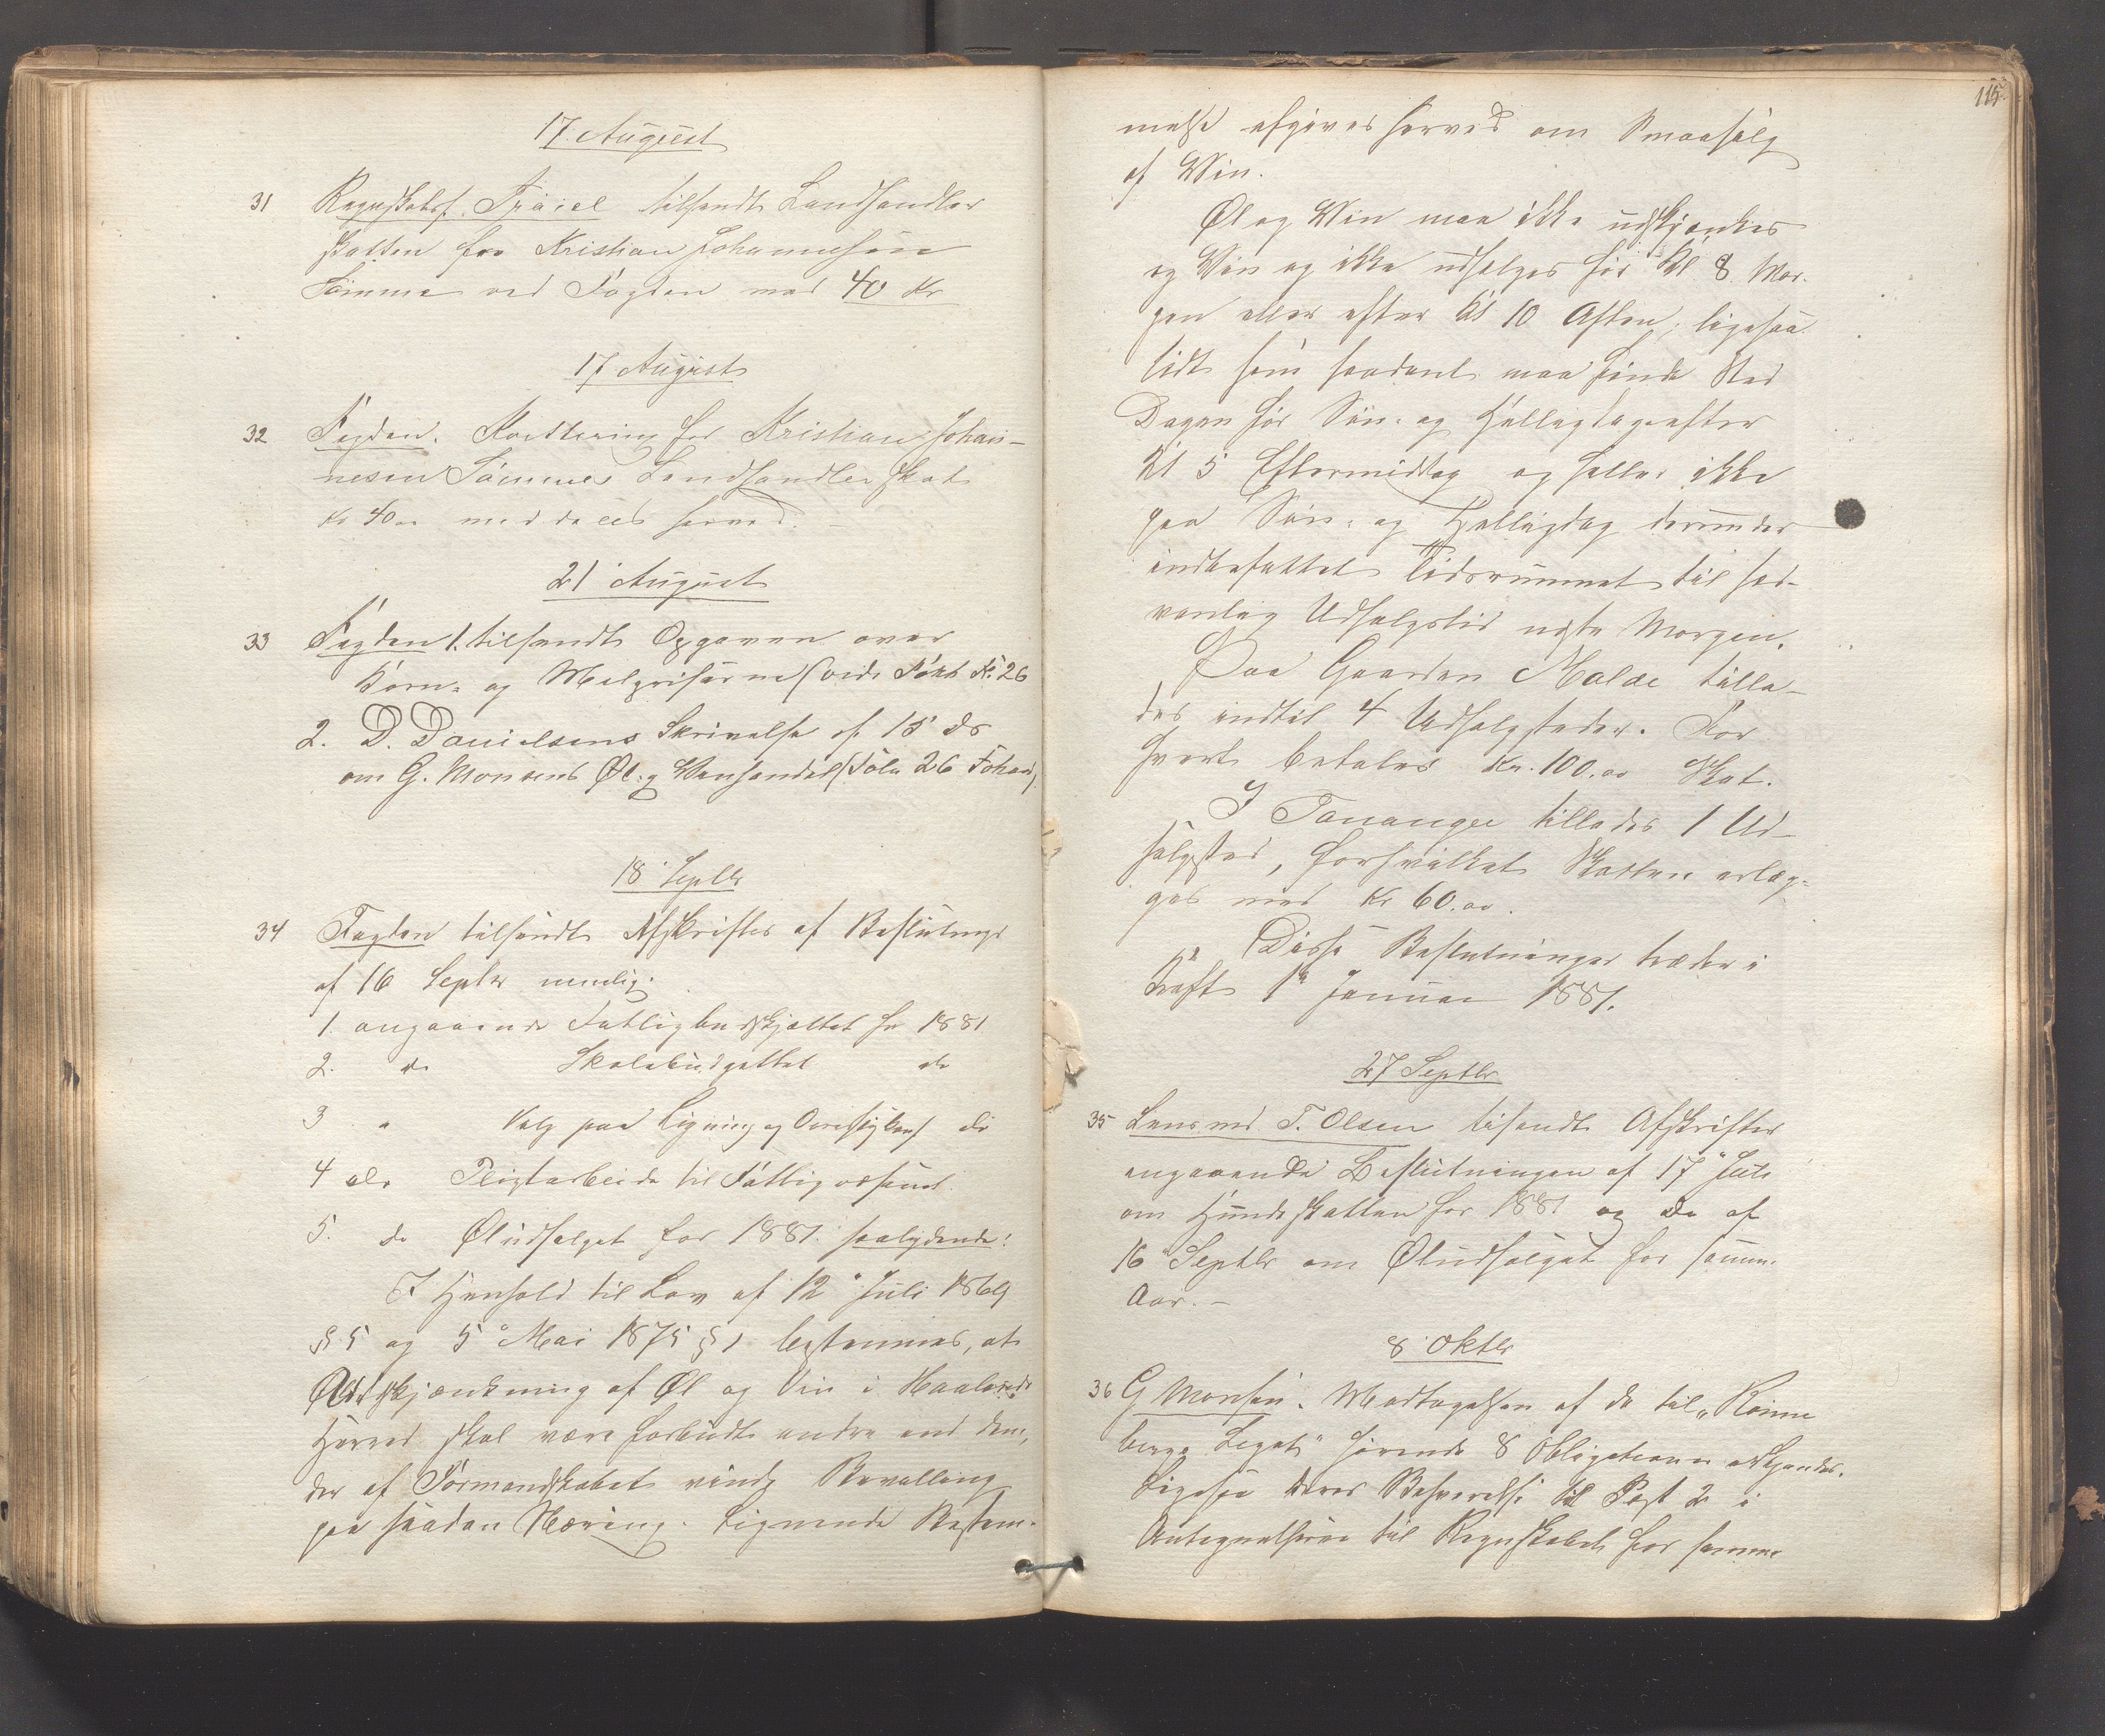 17. August
31 Regnskabsf. Traiel tilsendt Landhandler
skatten fra Kristian Johannesen
Sömme ved Fogden med 40 Kr
17 August
32 Fogden. Kvittering for Kristian Johan-
nesen Sömmes Landhandlerskat
Kr 40.00 meddeles herved. –
21 August
33 Fogden 1. tilsendt Opgaven over
Korn- og Melpriserne (vide Fol No 26
2. D. Danielsens Skrivelse af 15 ds
om G. Monsens Øl- og Vinhandel (Folio 26
18 Septbr
34 Fogden tilsendt Afskrifter af Beslutninger
af 16 Septbr nemlig:
1. angaaende Fattigbudskjettet for 1881
2. do Skolebudgettet do
3 " Valg paa Ligning og Overligning do
4 do Pligtarbeide til Fattigvæsenet.
5. do Øludsalget for 1881. saalydende:
I Henhold til Lov af 12 Juli 1869
§ 5 og 5 Mai 1875 § 1 bestemmes, at
Udskjænkning af Øl og Vin i Haalands
Herred skal være forbudt andre end dem,
der af Formandskabet Bevilling
paa saadan Næring. Lignende Bestem-
115.
melse afgives herved om Smaasalg
af Vin.
Øl og Vin maa ikke udskjænkes
og Vin og ikke udsælges før Kl. 8 Mor-
gen eller efter Kl 10 Aften, ligesaa
lidt som saadant maa finde Sted
Dagen før Søn- og Helligdag efter
Kl 5 Eftermiddag og heller ikke
paa Søn- og Helligdag derunder
indbefattet Tidsrummet til sæd-
vanlig Udsalgstid næste Morgen.
Paa Gaarden Malde tilla-
des indtil 4 Udsalgsteder. For
hvert betales Kr. 100.00 Skat.
I Tananger tillades 1 Ud-
salgsted, for hvilket Skatten erlæg-
ges med Kr 60.00.
Disse Beslutninger træder i
Kraft 1 Januar 1881.
27 Septbr
35 Lensmd T. Olsen tilsendt Afskrifter
angaaende Beslutningen af 17 Juli
om Hundeskatten for 1881 og do af
16 Septbr om Øludsalget for samme
Aar. –
8 Oktbr
36 G Monsen. Modtagelsen af de til "Rönne
bergs Legat" hørende 8 Obligationer erkjendes.
Ligesaa Deres Besvarelse til Post 2 i
Antegnelserne til Regnskabet for samme